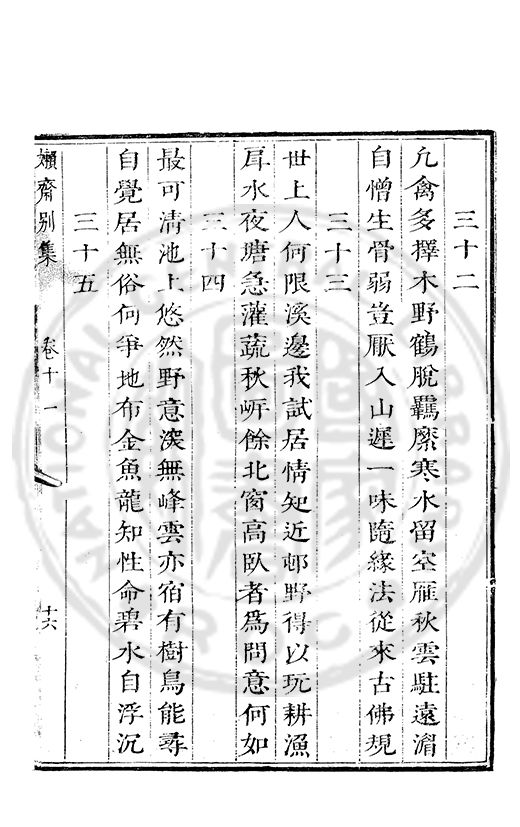 三十二
凢禽多擇木野鶴脫羈縻寒水留空雁秋雲駐遠湄
自憎生骨弱豈厭入山遲一味隨緣法從來古佛規
三十三
世上人何限溪邊我試居情知近邨野得以玩耕漁
戽水夜塘急灌蔬秋㽁餘北窗高臥者爲問意何如
三十四
最可清池上悠然野意深無峰雲亦宿有樹鳥能尋
自覺居無俗何爭地布金魚龍知性命碧水自浮沉
三十五
嬾齋别集
卷十一
十六